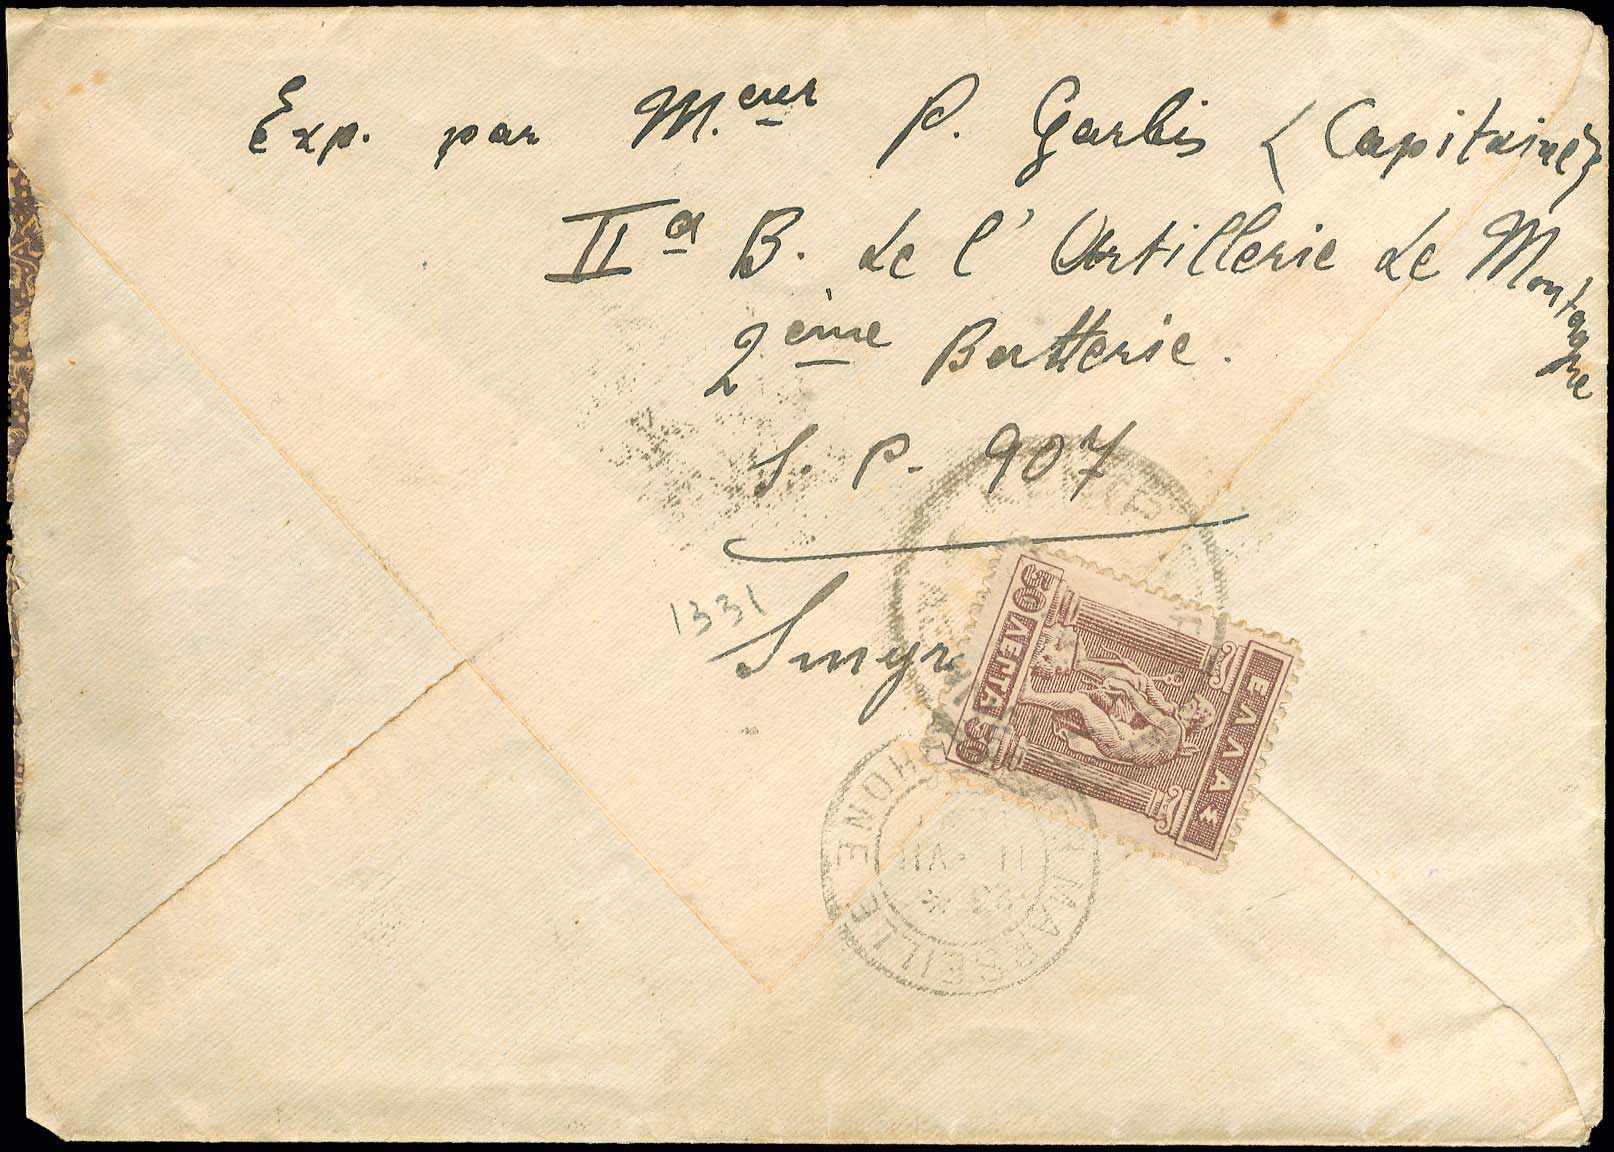 Exp. par M.eur P. Garbis (Capitaine)
IIa B. de l' Artillerie de Montagne
2ème Batterie.
S. P. 907
1331
Smyr
50 ΛΕΠΤΑ 50
ΕΛΛΑΣ
MARSEILLE